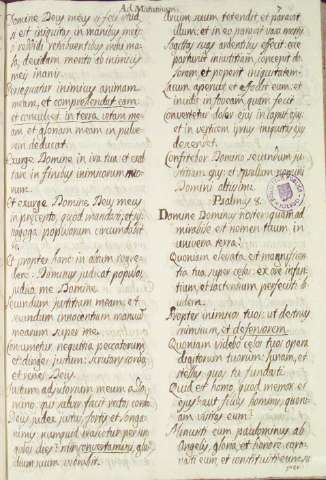 Ad Matutinum.
Domine Deus meus si feci istud,
si est iniquitas in manibus meis.
si reddidi retribuentibus mihi ma-
la, decidam merito ab inimicis
meis inanis.
Persequatur inimicus animam
meam, et comprehendat eam
et conculcet in terra vitam me-
am et gloriam meam in pulve-
rem deducat.
Exurge Domine in ira tua: et exal-
tare in finibus inimicorum meo-
rum.
Et exurge Domine Deus meus
in precepto, quod mandasti, et sy-
nagoga populorum circumdabit
te.
Et propter hanc in altum regre-
dere: Dominus judicat populos
judica me Domine
secundum justitiam meam: et
secundum innocentiam manuum
mearum super me.
Consumetur nequitia peccatorum,
et diriges justum: scrutans corda,
et renes Deus.
Justum adjutorium meum a Do-
mino: qui salvos facit rectos corde
Deus judex justus, fortis et longa-
nimis: numquid irascitur per sin-
gulos dies? nisi conversi fueritis, gla-
dium suum vibrabit.
Arcum suum tetendit, et paravit
illum: et in eo paravit vasa mortis
sagittas suas ardentibus effecit: ecce
parturiit injustitiam, concepit do-
lorem, et peperit iniquitatem.
Lacum aperuit et effodit eum: et
incidit in foveam, quam fecit
Convertetur dolor ejus in caput ejus:
et in verticem ipsius iniquitas ejus
descendet.
Confitebor Domino secundum ju-
stitiam ejus: et psallam nomini
Domini altissimi.
Psalmus 8.
Domine Dominus noster, quam ad-
mirabile est nomen tuum, in
universa terra!
Quoniam elevata est magnificen-
tia tua, super celos: ex ore infan-
tium, et lactentium perfecisti lau-
dem
Propter inimicos tuos: ut destruas
inimicum, et defensorem.
Quoniam videbo celos tuos opera
digitorum tuorum: lunam, et
stellas quas tu fundasti.
Quid est homo, quod memor es
ejus? aut filius hominis, quoni-
am visitas eum?
Minuisti eum paulominus ab
Angelis, gloria, et honore coro-
nasti eum, et constituisti eum su-
per